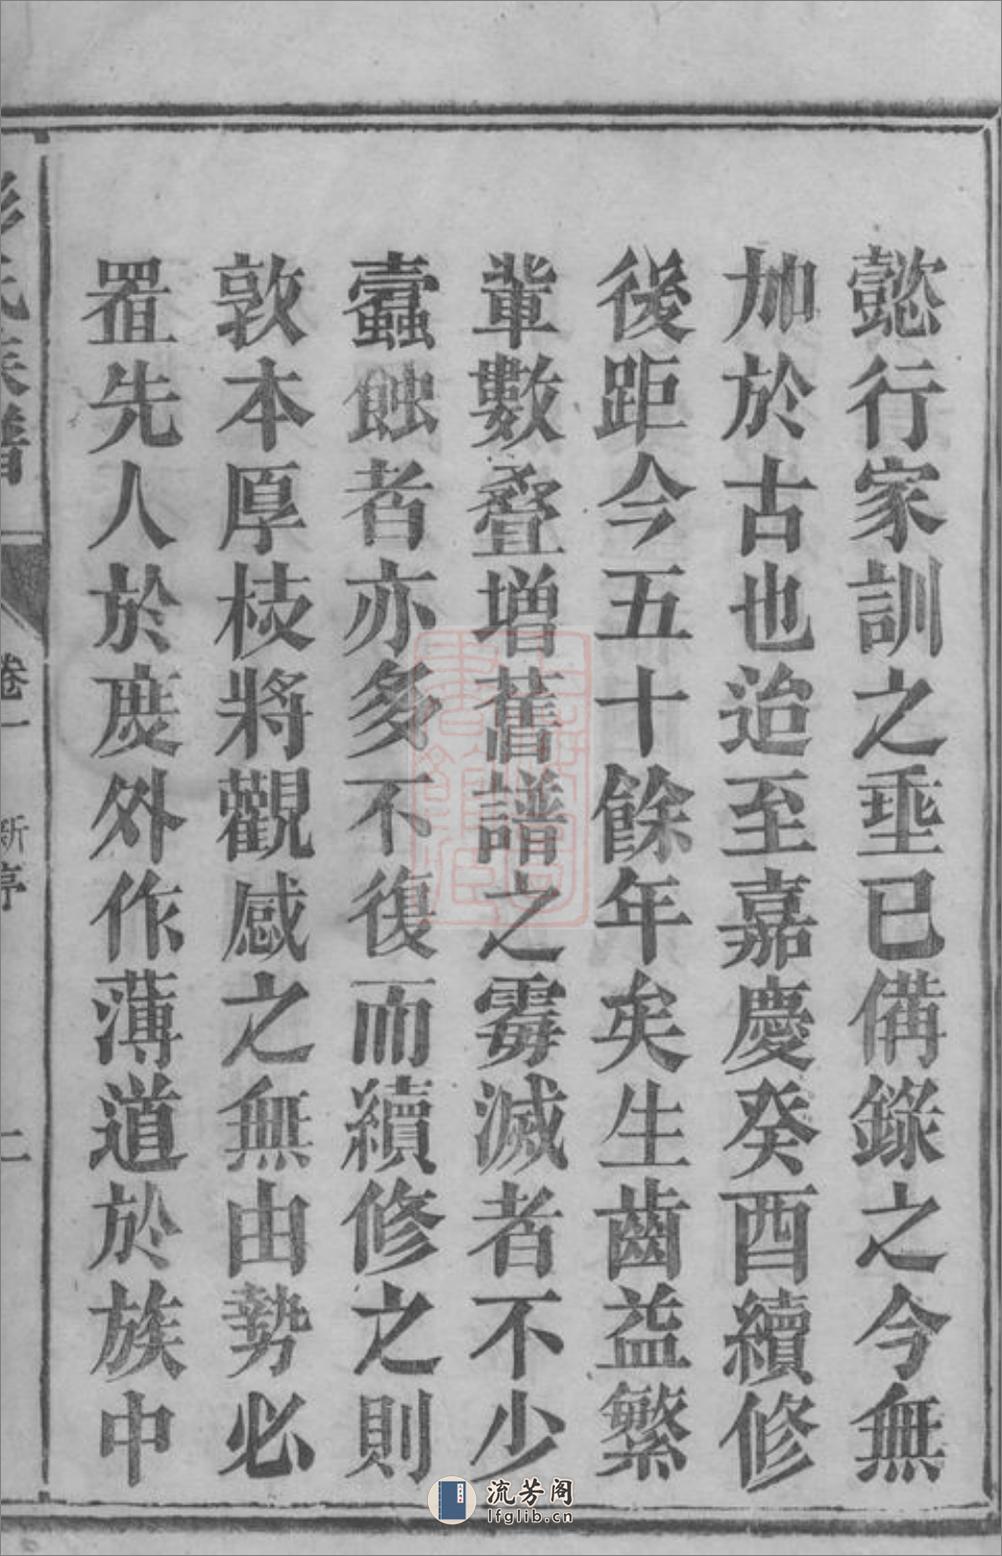 懿行家訓之埀已備錄之今無
加於古也迨至嘉慶癸酉續修
後距今五十餘年矣生齒益繁
軰數叠增舊譜之霉滅者不少
蠧蝕者亦多不復而續修之則
敦本厚枝將觀感之無由勢必
置先人於度外作薄道於族中
氏族譜
卷一
新序
二
流芳阁
lfglib.cn